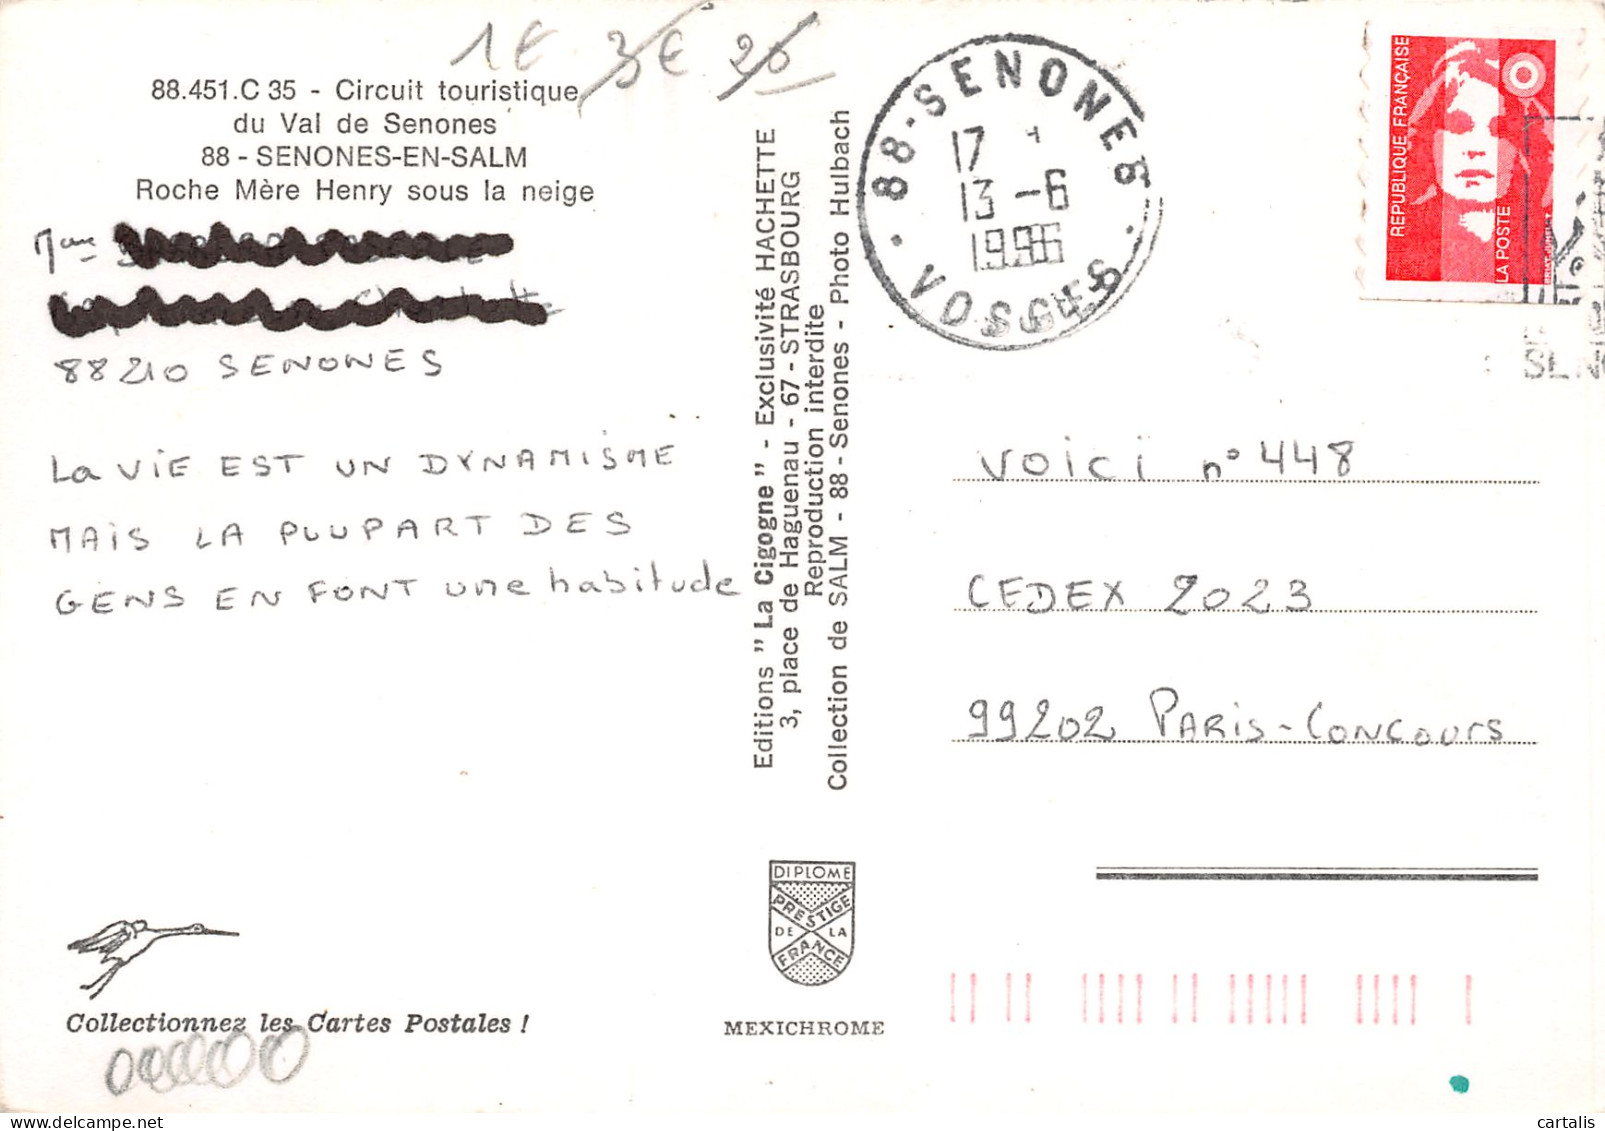 1€ 3€ 20
88.451.C 35 - Circuit touristique
du Val de Senones
88 - SENONES-EN-SALM
Roche Mère Henry sous la neige
Mme
88210 SENONES
LA VIE EST UN DYNAMISME
MAIS LA PLUPART DES
GENS EN FONT une habitude
Collectionnez les Cartes Postales !
Editions " La Cigogne " - Exclusivité HACHETTE
3, place de Haguenau - 67 - STRASBOURG
Reproduction interdite
Collection de SALM - 88 - Senones - Photo Hulbach
DIPLOME
PRESTIGE
DE LA
FRANCE
MEXICHROME
88-SENONES
17
13-6
1996
VOSGES
REPUBLIQUE FRANÇAISE
LA POSTE
VOICI n° 448
CEDEX 2023
99202 PARIS-CONCOURS
cartalis